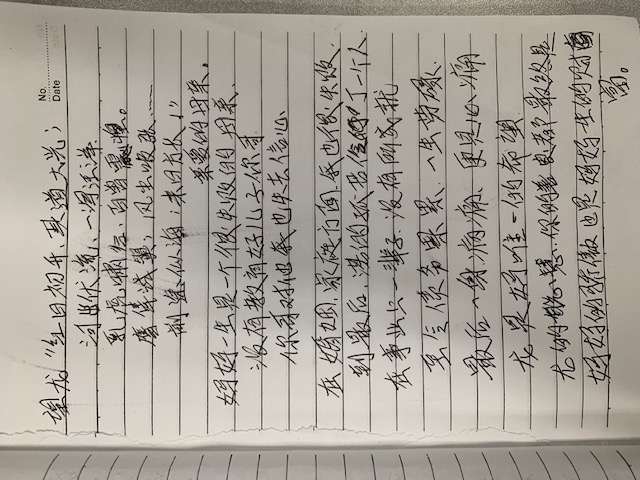 No.
Date
望龙"红日初升、其道大光;
河出伏流、一泻汪洋.
乳虎啸谷、百兽震惶。
鹰隼试翼; 风尘吸张……
前途似海; 来日方长!"
亲爱的母亲。
妈妈一生是一个很失败的母亲.
没有教育好儿子你哥
你哥对他我也失去信心
在婚姻、家庭方面、我也很失败.
到最后、落的孤苦伶仃了一个人
在事业只一辈子、没有所成就
至今债务累累、一生劳碌.
最后一身病痛、更是心痛
龙是妈唯一的希望
龙的聪慧、你的善良都最终是
妈妈的骄傲也是妈妈一生的财富
富。